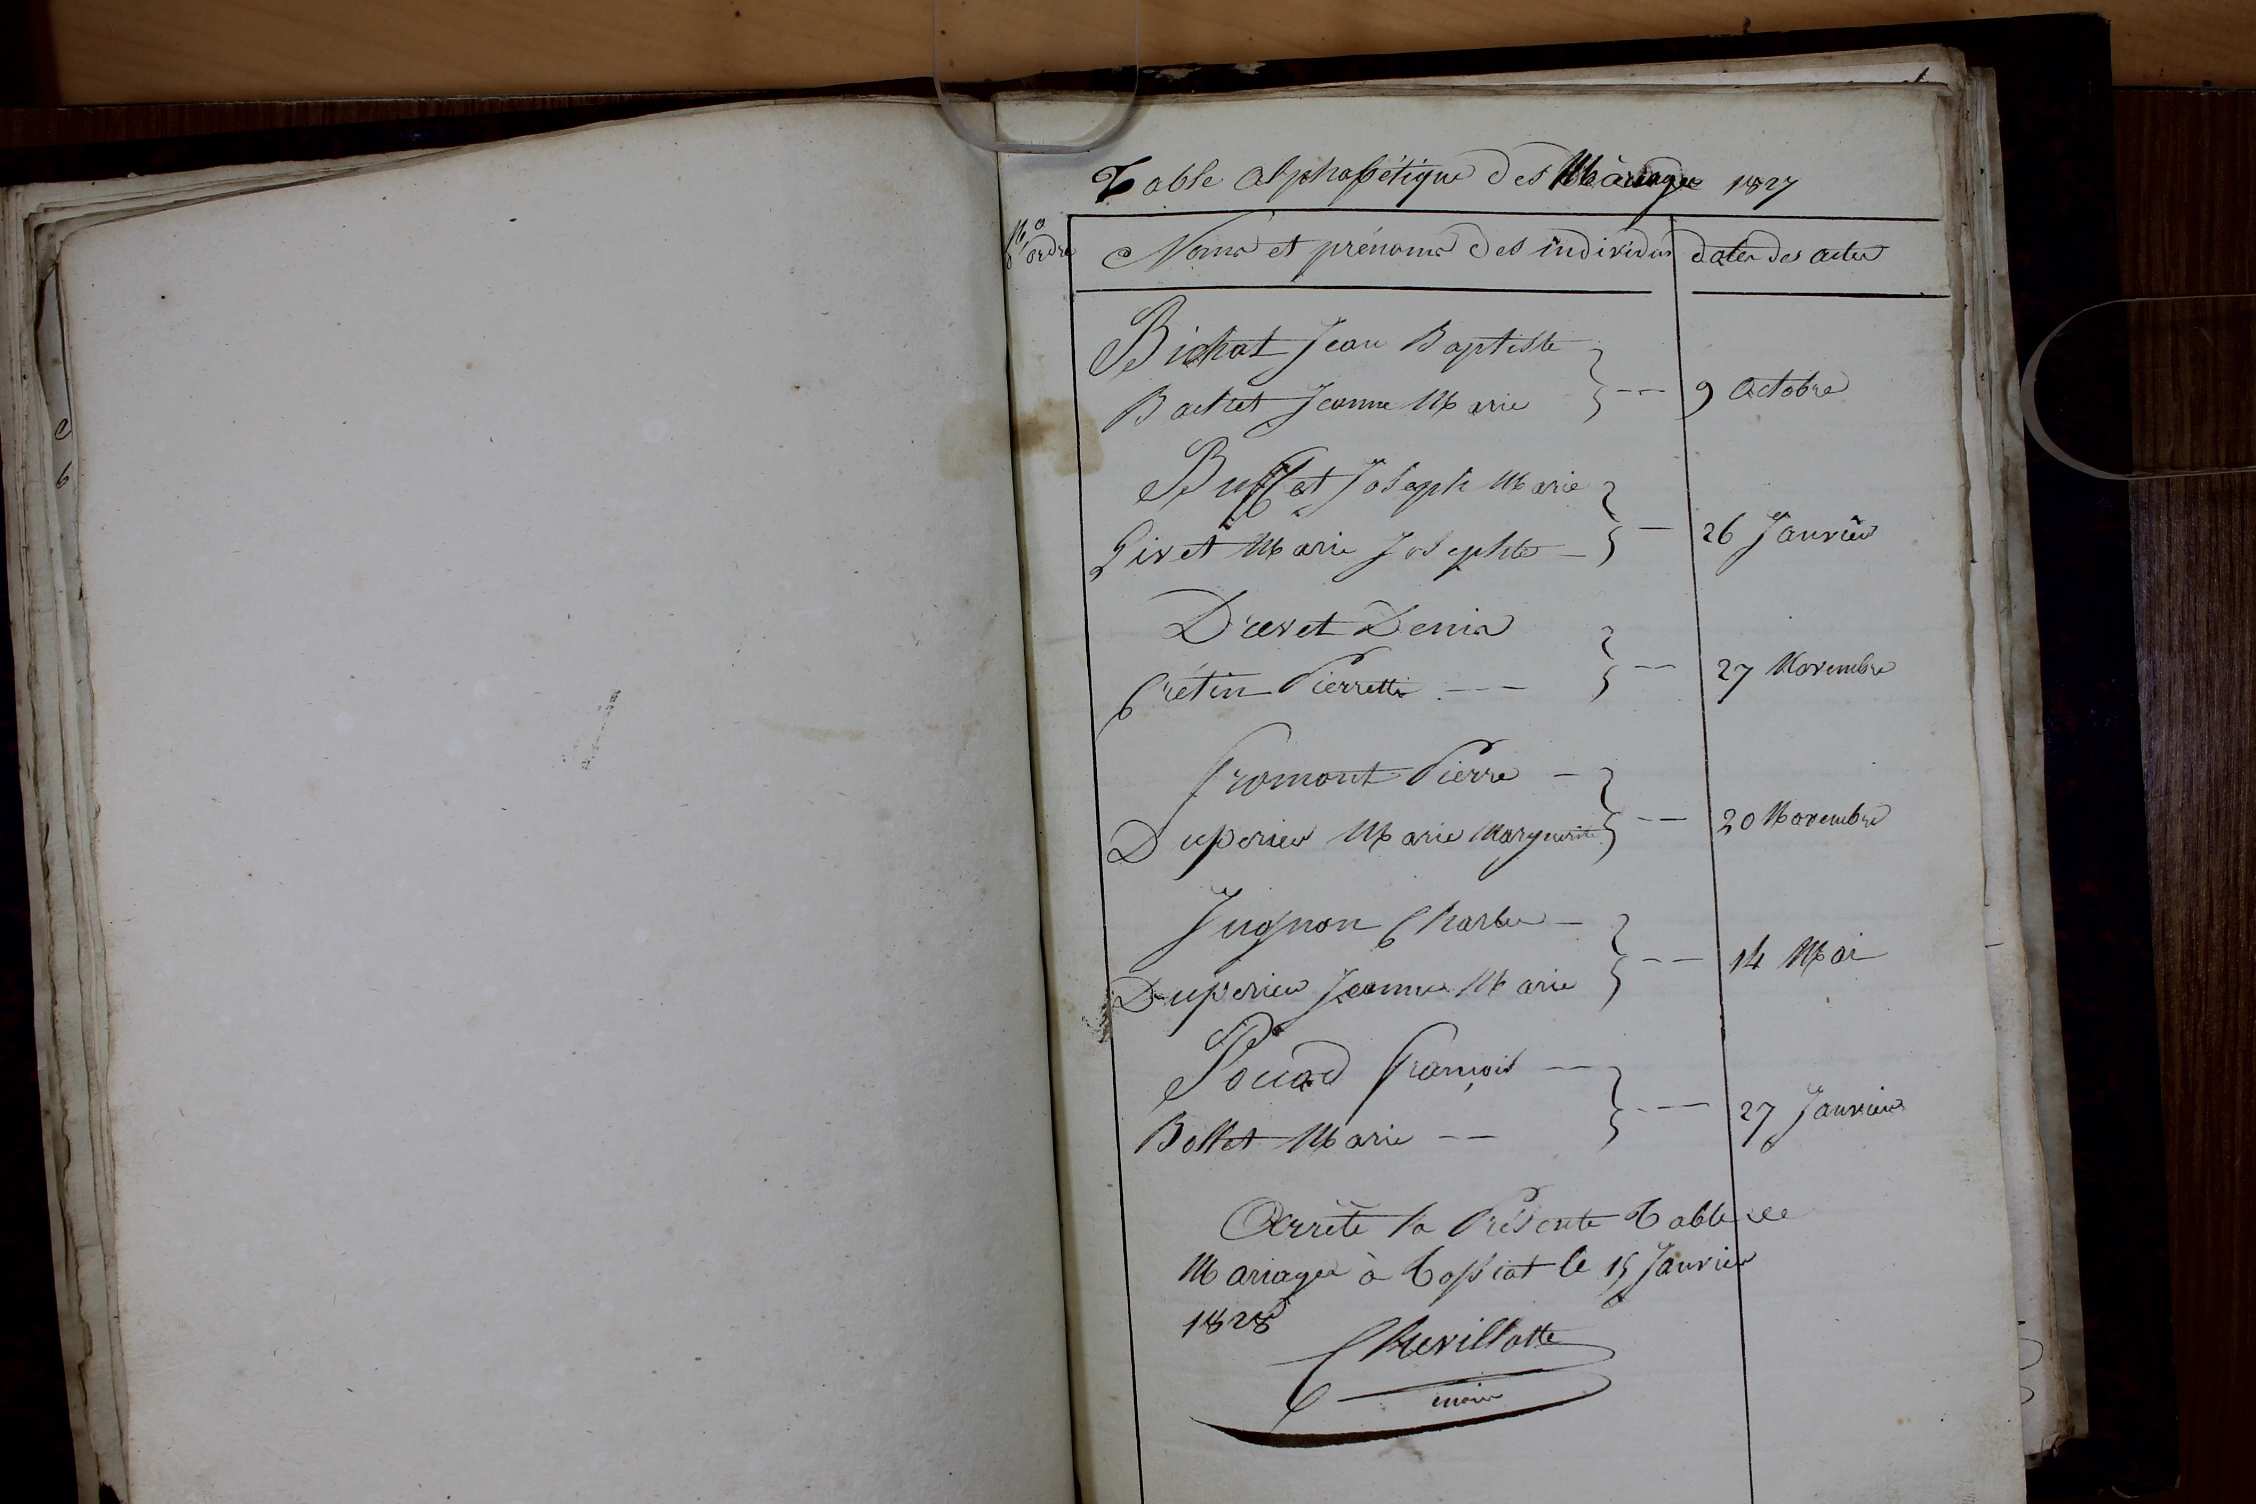 Table alphabétique des Mariages 1827
No
d'ordre
Noms et prénoms des individus
dates des actes
Bichat Jean Baptiste
Bachet Jeanne Marie
9 Octobre
Buffet Joseph Marie
Givet Marie Josephte
26 Janvier
Drevet Denis
Crétin Pierrette
27 Novembre
Fromont Pierre
Duperier Marie Marguerite
20 Novembre
Jugnon Charles
Duperier Jeanne Marie
14 Mai
Pocad François
Bollet Marie
27 Janvier
Arrêté la Présente Table de
Mariages à Cossiat le 15 Janvier
1828
Chevillotte
maire